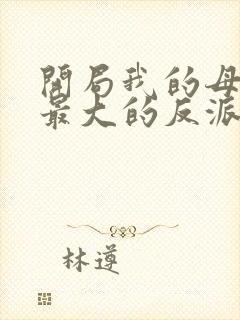 開局我的母
最大的反派
林遵